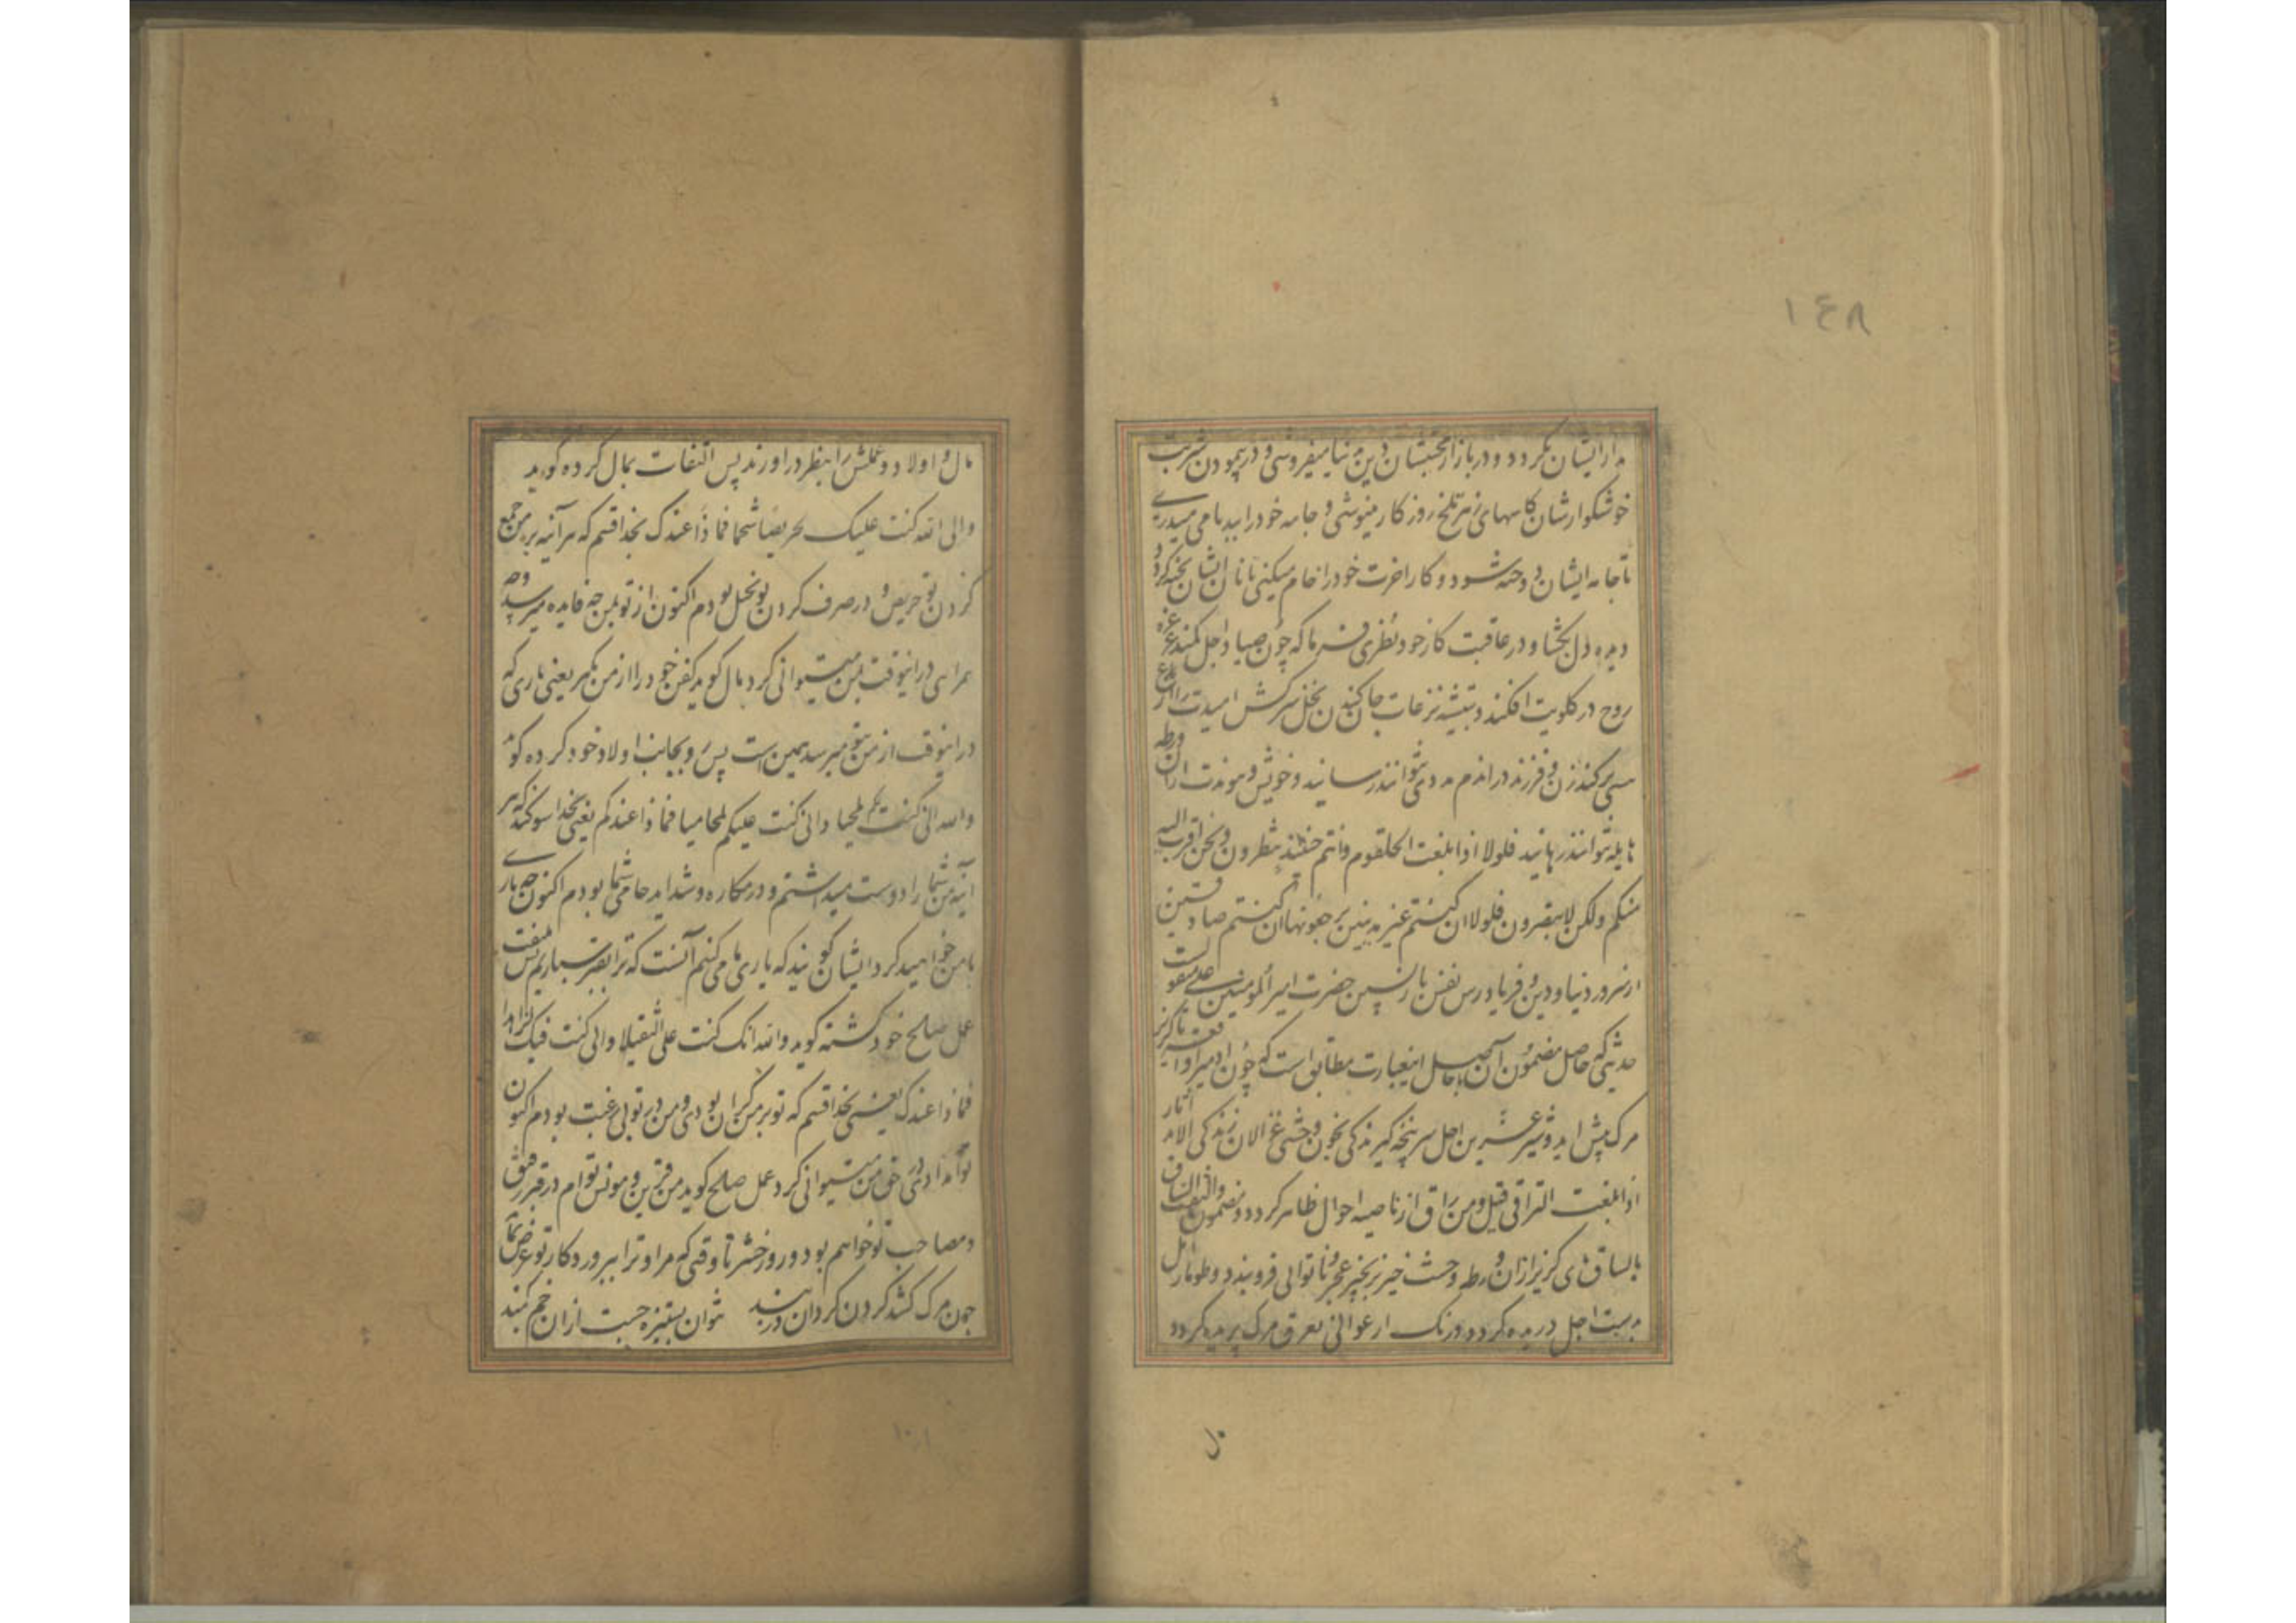 ١٤٨
مدار ایشان نکردد و در بازار محبتشان دین بدنیا میفروشی و در پیمودن شربت
خوشکوارشان کاسهای زهر تلخ روزکار مینوشی و جامه خود را بیدنامی میدری
تا جامه ایشان دوخته شود و کار اخرت خود را خام میکنی تا نان ایشان پخته کردد
دیده دل بکشا و در عاقبت کار خود نظری فرما که چون صیاد اجل کمند
روح در کلویت افکند و تیشه نزعات جان کندن نخل سرکش امیدت را از
برکند زن و فرزند در اندم مددی نتوانند رسانید و خویش و پیوندت از ان ورطه
هایله نتوانند رهانید فلولا اذا بلغت الحلقوم وانتم حینئذ تنظرون ونحن اقرب الیه
منکم ولکن لا تبصرون فلولا ان کنتم غیر مدینین ترجعونها ان کنتم صادقین
از سرور دنیا و دین و فریادرس نفس بازپسین حضرت امیر المؤمنین علی منقولست
حدیثی که حاصل مضمون آن باحاصل اینعبارت مطابق است که چون ادمیرا واقعه ناکزیر
مرک پیش اید و شیر عرین اجل سرپنجه کیرندکی بخون وحشی غزالان زندکی الاید اثار
اذا بلغت التراقی وقیل من راق از ناصیه احوال ظاهر کردد و مضمون والتفت الساق
بالساق پای کریز از ان ورطه وحشت خیز بزنجیر عجز و ناتوانی فروبندد و طومار امل
بدست اجل دریده کردد و رنک ارغوانی بعرق مرک پریده کردد
مال و اولاد و عملش را بنظر دراورند پس التفات بمال کرده کوید
والله انی کنت علیک حریصا شحیحا فماذا عندک بخدا قسم که هر آینه بر جمع
کردن تو حریص و در صرف کردن تو بخیل بودم اکنون از تو بمن چه فایده میرسد و چه
همراهی در اینوقت بمن میتوانی کرد مال کوید کفن خود را از من بکیر یعنی یاری که
در اینوقت از من بتو میرسد همین است پس رو بجانب اولاد خود کرده کوید
والله انی کنت لکم لمحبا وانی کنت علیکم لمحامیا فماذا عندکم یعنی بخدا سوکند که هر
آینه من شما را دوست میداشتم و در مکاره و شداید حامی شما بودم اکنون چه یاری
با من خواهید کرد ایشان کویند که یاری ما می کنیم آنست که ترا بقبر سپاریم پس ملتفت
عمل صالح خود کشته کوید والله انک کنت علی لثقیلا وانی کنت فیک لزاهدا
فماذا عندک یعنی بخدا قسم که تو بر من کران بودی و من در تو بی رغبت بودم اکنون
تو چه امدادی در حق من میتوانی کرد عمل صالح کوید من قرین و مونس توام در قبر رفیق
و مصاحب تو خواهم بود در روز حشر تا وقتی که مرا و ترا بپروردکار تو عرض نمایند
چون مرک کشد کردن کردان در بند نتوان بستیزه جست از ان خم کمند